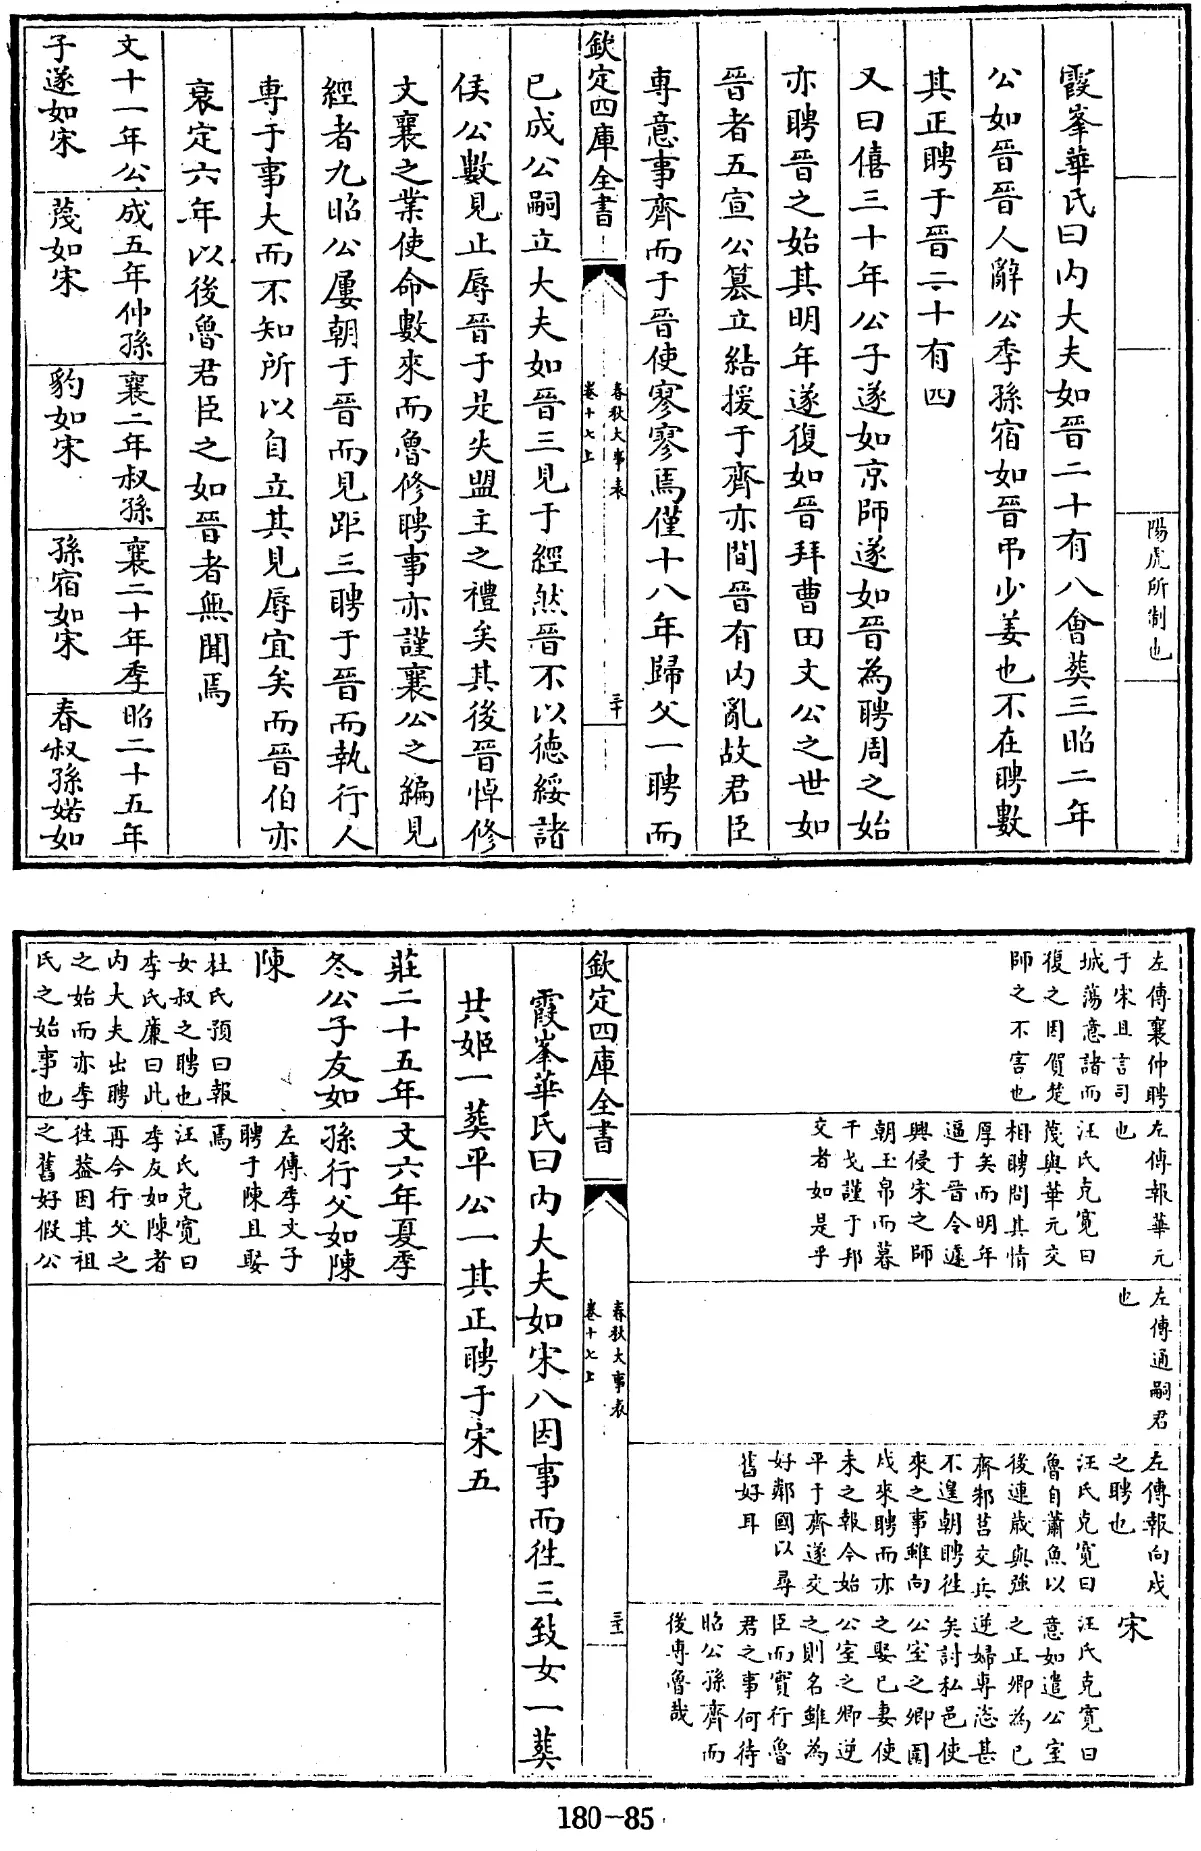 陽虎所制也
霞峯華氏曰内大夫如晉二十有八會葬三昭二年
公如晉晉人辭公季孫宿如晉弔少姜也不在聘數
其正聘于晉二十有四
又曰僖三十年公子遂如京師遂如晉為聘周之始
亦聘晉之始其明年遂復如晉拜曹田文公之世如
晉者五宣公簒立結援于齊亦間晉有内亂故君臣
專意事齊而于晉使寥寥焉僅十八年歸父一聘而
欽定四庫全書
春秋大事表
卷十七上
三十
已成公嗣立大夫如晉三見于經然晉不以德綏諸
侯公數見止辱晉于是失盟主之禮矣其後晉悼修
文襄之業使命數來而魯修聘事亦謹襄公之編見
經者九昭公屢朝于晉而見距三聘于晉而執行人
專于事大而不知所以自立其見辱宜矣而晉伯亦
衰定六年以後魯君臣之如晉者無聞焉
文十一年公
子遂如宋
成五年仲孫
蔑如宋
襄二年叔孫
豹如宋
襄二十年季
孫宿如宋
昭二十五年
春叔孫婼如
左傳襄仲聘
于宋且言司
城蕩意諸而
復之因賀楚
師之不害也
左傳報華元
也
汪氏克寛曰
蔑與華元交
相聘問其情
厚矣而明年
逼于晉令遽
興侵宋之師
朝玉帛而暮
干戈謹于邦
交者如是乎
左傳通嗣君
也
左傳報向戌
之聘也
汪氏克寛曰
魯自蕭魚以
後連歲與強
齊邾莒交兵
不遑朝聘往
來之事雖向
戌來聘而亦
未之報今始
平于齊遂交
好鄰國以尋
舊好耳
宋
汪氏克寛曰
意如遣公室
之正卿為已
逆婦專恣甚
矣討私邑使
公室之卿圍
之娶已妻使
公室之卿逆
之則名雖為
臣而實行魯
君之事何待
昭公孫齊而
後專魯哉
欽定四庫全書
春秋大事表
卷十七上
三十一
霞峯華氏曰内大夫如宋八因事而往三致女一葬
共姬一葬平公一其正聘于宋五
莊二十五年
冬公子友如
陳
杜氏預曰報
女叔之聘也
李氏廉曰此
内大夫出聘
之始而亦季
氏之始事也
文六年夏季
孫行父如陳
左傳季文子
聘于陳且娶
焉
汪氏克寛曰
季友如陳者
再今行父之
往葢因其祖
之舊好假公
180-85